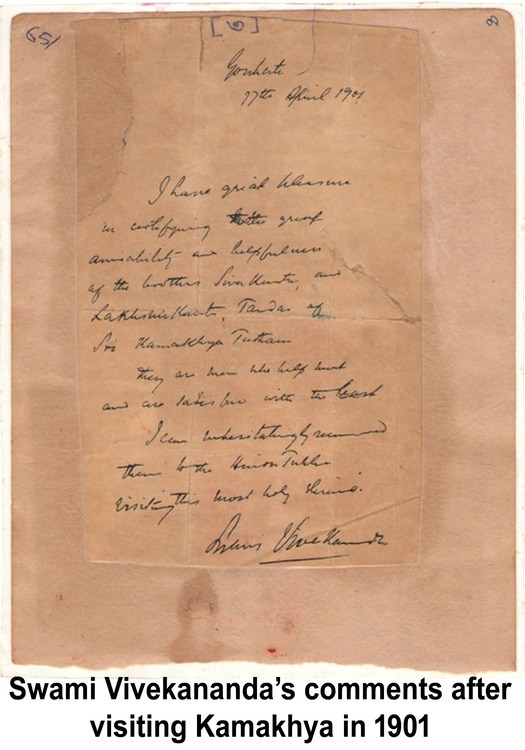 651
[6]
8
Gouhati
17th April 1901
I have great pleasure
in certifying the great
amiability and helpfulness
of the brothers Siva Kanta, and
Lakshmi Kanta, Pandas of
Sri Kamakhya Peetham
they are men who help most
and are satisfied with the least
I can unhesitatingly recommend
them to the Hindu Public
visiting this most holy shrine.
Vivekananda
Swami Vivekananda's comments after
visiting Kamakhya in 1901